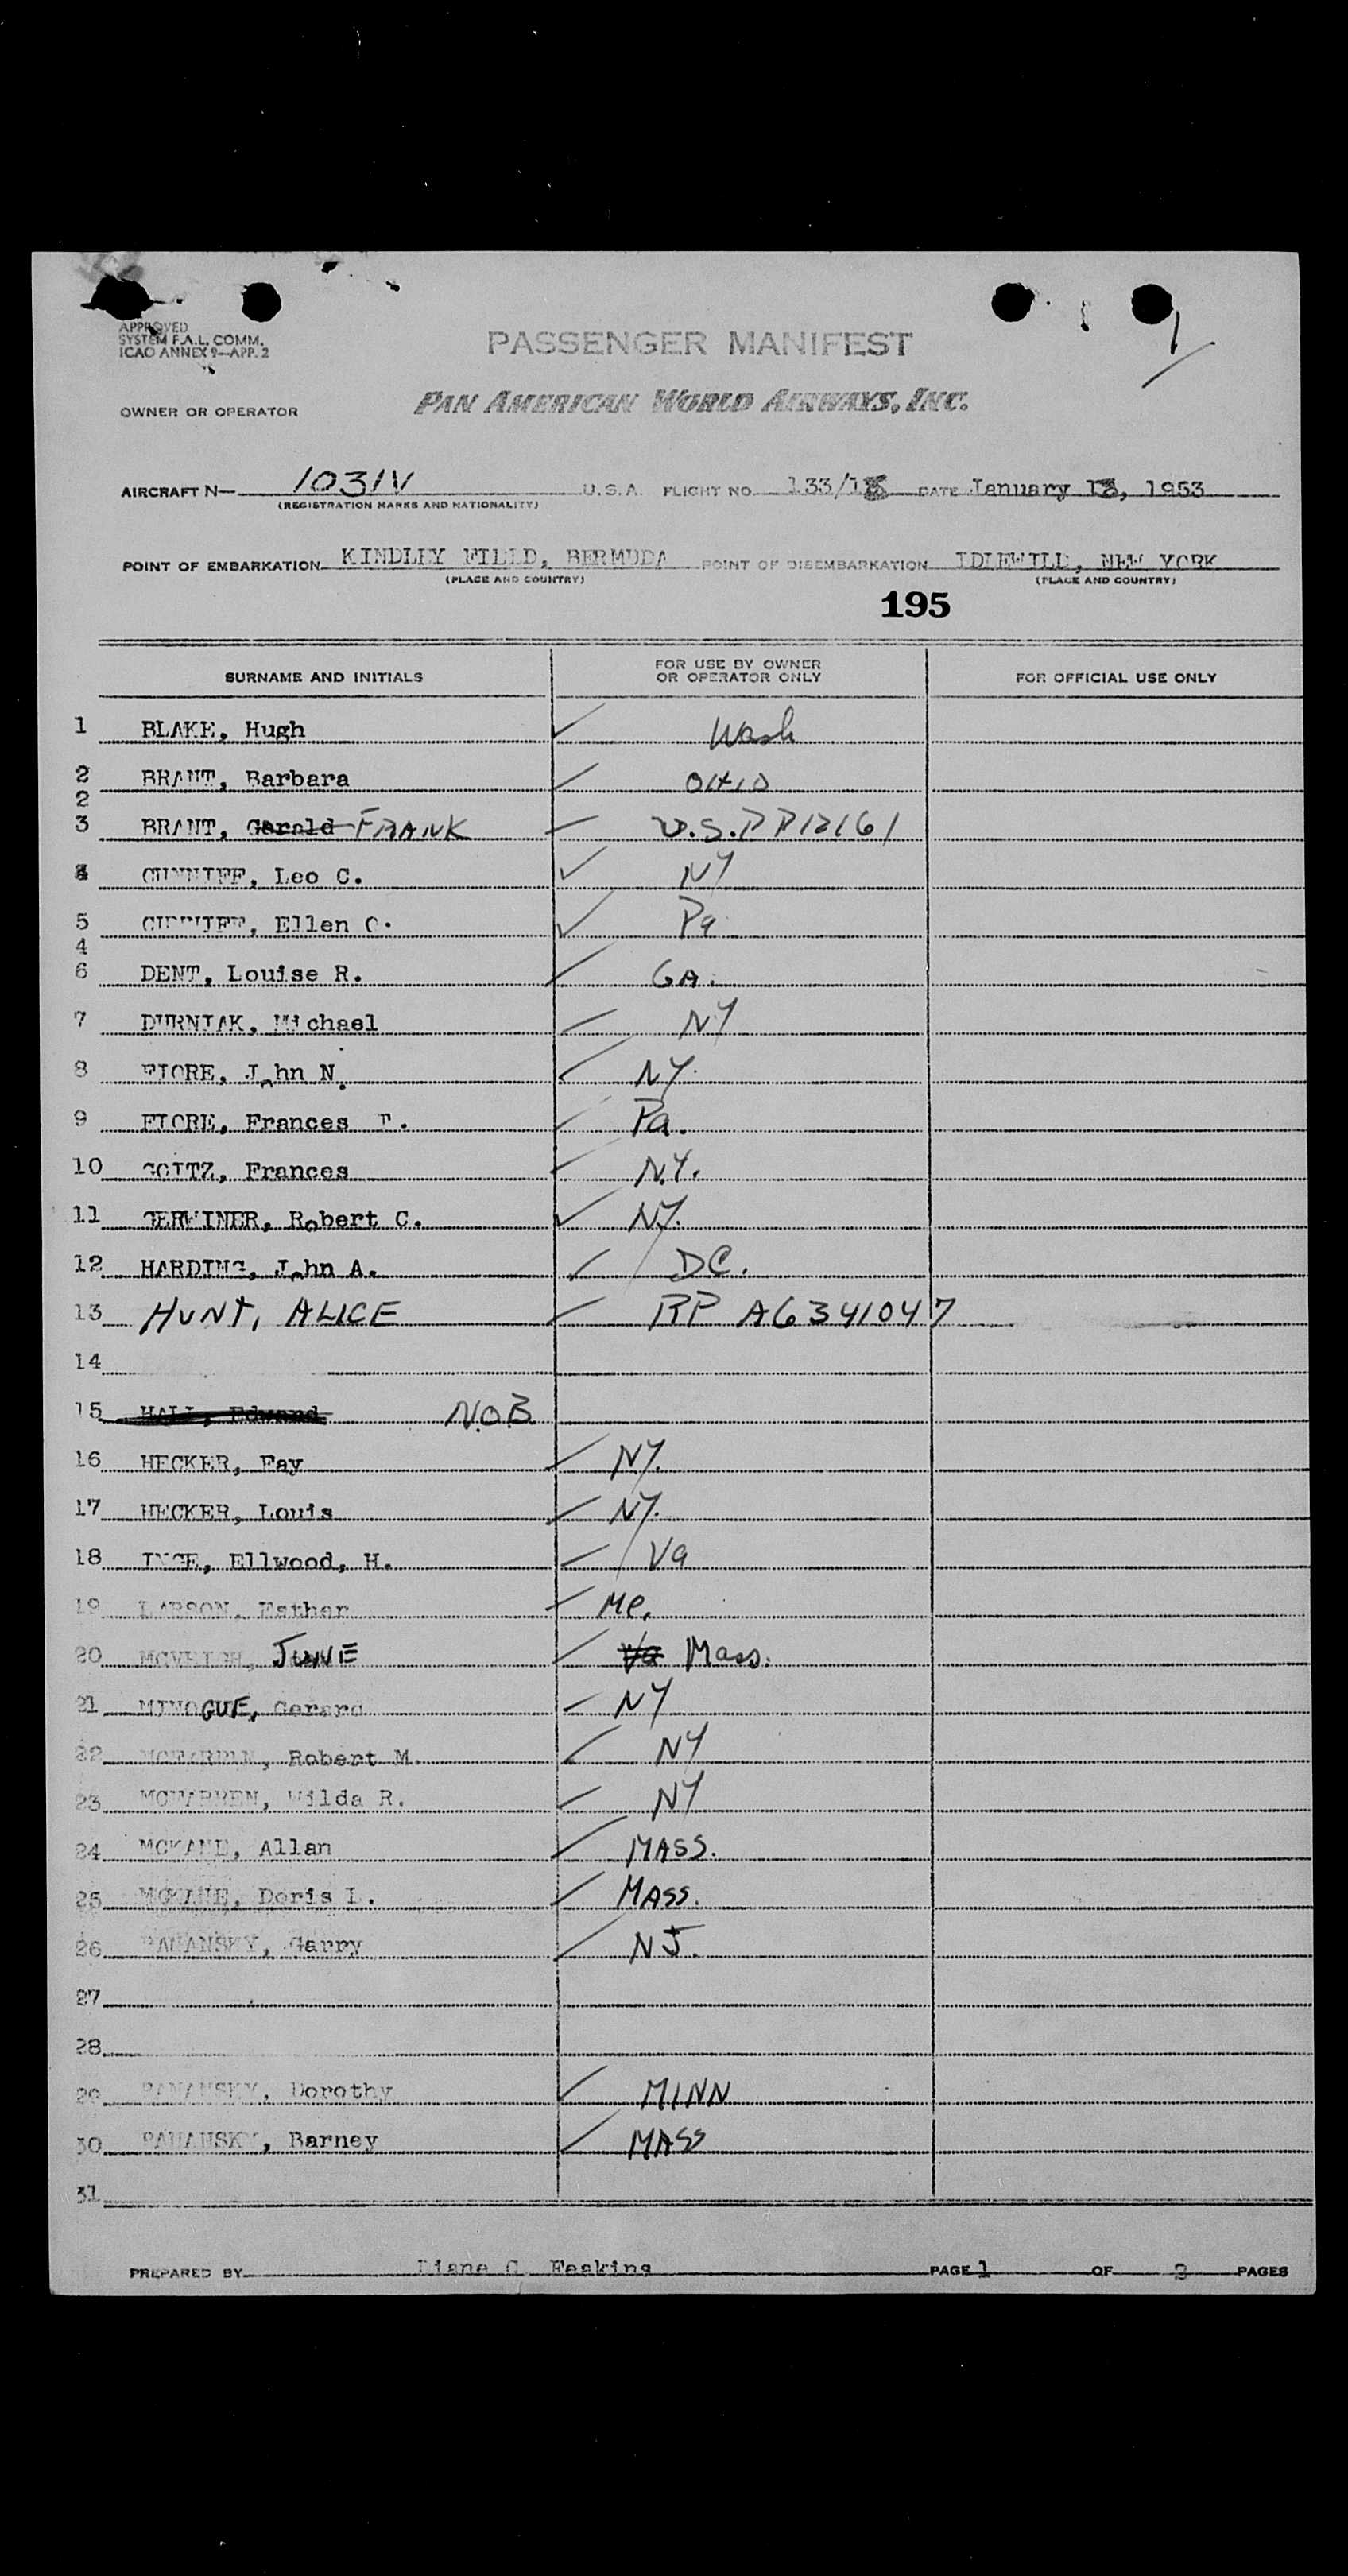 APPROVED
SYSTEM F.A.L. COMM.
ICAO ANNEX 9—APP. 2
PASSENGER MANIFEST
1
OWNER OR OPERATOR PAN AMERICAN WORLD AIRWAYS, INC.
AIRCRAFT N— 1031V U.S.A. FLIGHT NO. 133/13 DATE January 13, 1953
(REGISTRATION MARKS AND NATIONALITY)
POINT OF EMBARKATION KINDLEY FIELD, BERMUDA POINT OF DISEMBARKATION IDLEWILD, NEW YORK
(PLACE AND COUNTRY) (PLACE AND COUNTRY)
195
SURNAME AND INITIALS FOR USE BY OWNER OR OPERATOR ONLY FOR OFFICIAL USE ONLY
1 BLAKE, Hugh ✓ Wash
2 BRANT, Barbara ✓ OHIO
2
3 BRANT, Gerald FRANK ✓ U.S.PP12161
4 CUNNIFF, Leo C. ✓ NY
5 CUNNIFF, Ellen C. ✓ Pa
4
6 DENT, Louise R. ✓ GA.
7 DURNIAK, Michael ✓ NY
8 FIORE, John N. ✓ NY.
9 FIORE, Frances ✓ Pa.
10 GOITZ, Frances ✓ N.Y.
11 GERWINER, Robert C. ✓ NY.
12 HARDING, John A. ✓ DC.
13 HUNT, ALICE ✓ RP A6341047
14
15 HALL, Edward N.O.B.
16 HECKER, Fay ✓ NY.
17 HECKER, Louis ✓ NY.
18 INGE, Ellwood, H. ✓ Va
19 LARSON, Esther ✓ Me.
20 MCVEIGH, JUNE ✓ Va Mass.
21 MINOGUE, Gerard ✓ NY
22 Robert M. ✓ NY
23 Wilda R. ✓ NY
24 MCKANE, Allan ✓ MASS.
25 MCKANE, Doris L. ✓ MASS.
26 PAHANSKY, Garry ✓ NJ.
27
28
29 PAHANSKY, Dorothy ✓ MINN
30 PAHANSKY, Barney ✓ MASS
31
PREPARED BY Diane C. PAGE 1 OF PAGES